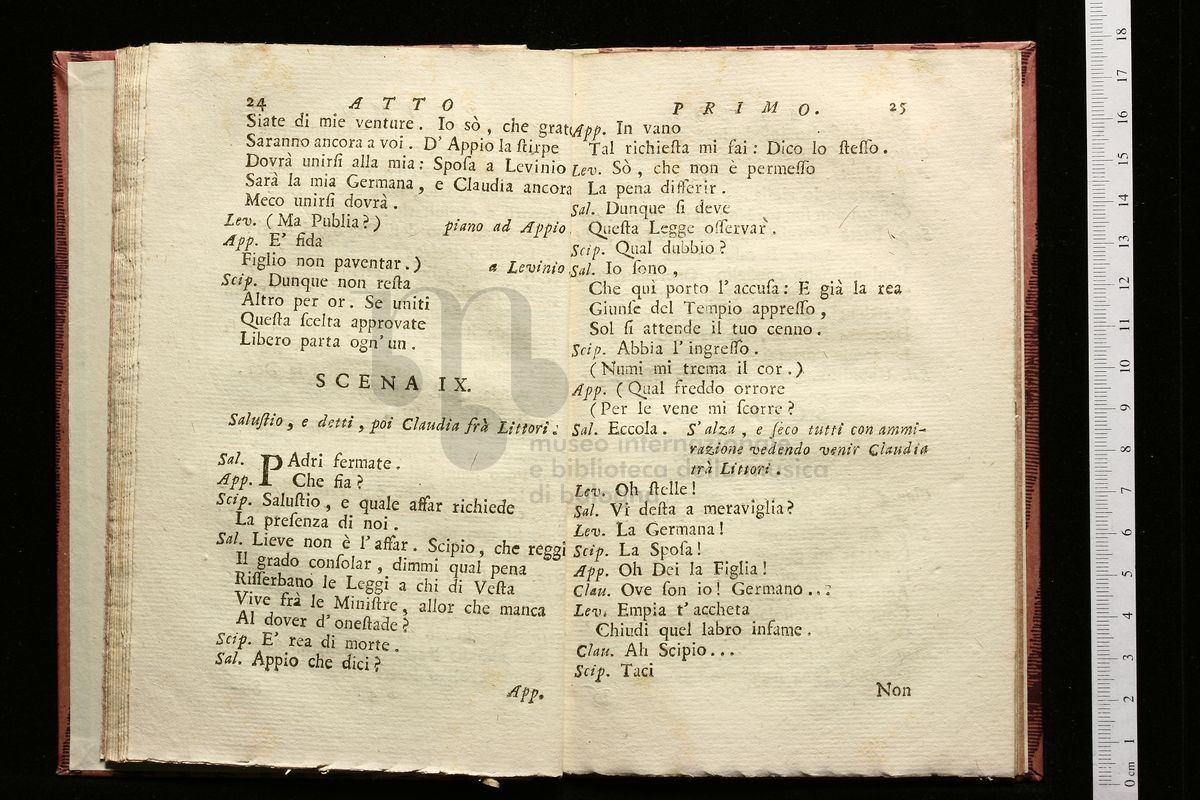 24 ATTO
Siate di mie venture. Io sò, che grat
Saranno ancora a voi. D' Appio la ſtirpe
Dovrà unirſi alla mia: Spoſa a Levinio
Sarà la mia Germana, e Claudia ancora
Meco unirſi dovrà.
Lev. (Ma Publia?) piano ad Appio
App. E' fida
Figlio non paventar.) a Levinio
Scip. Dunque non reſta
Altro per or. Se uniti
Queſta ſcelta approvate
Libero parta ogn' un.
SCENA IX.
Saluſtio, e detti, poi Claudia frà Littori.
Sal. PAdri fermate.
App. Che fia?
Scip. Saluſtio, e quale affar richiede
La preſenza di noi.
Sal. Lieve non è l' affar. Scipio, che reggi
Il grado conſolar, dimmi qual pena
Riſſerbano le Leggi a chi di Veſta
Vive frà le Miniſtre, allor che manca
Al dover d' oneſtade?
Scip. E' rea di morte.
Sal. Appio che dici?
App.
PRIMO. 25
App. In vano
Tal richieſta mi fai: Dico lo ſteſſo.
Lev. Sò, che non è permeſſo
La pena differir.
Sal. Dunque ſi deve
Queſta Legge oſſervar.
Scip. Qual dubbio?
Sal. Io ſono,
Che quì porto l' accuſa: E già la rea
Giunſe del Tempio appreſſo,
Sol ſi attende il tuo cenno.
Scip. Abbia l' ingreſſo.
(Numi mi trema il cor.)
App. (Qual freddo orrore
(Per le vene mi ſcorre?
Sal. Eccola. S' alza, e ſeco tutti con ammi-
razione vedendo venir Claudia
trà Littori.
Lev. Oh ſtelle!
Sal. Vi deſta a meraviglia?
Lev. La Germana!
Scip. La Spoſa!
App. Oh Dei la Figlia!
Clau. Ove ſon io! Germano...
Lev. Empia t' accheta
Chiudi quel labro infame.
Clau. Ah Scipio...
Scip. Taci
Non
museo internazionale
e biblioteca della musica
di bologna
0 cm 1 2 3 4 5 6 7 8 9 10 11 12 13 14 15 16 17 18